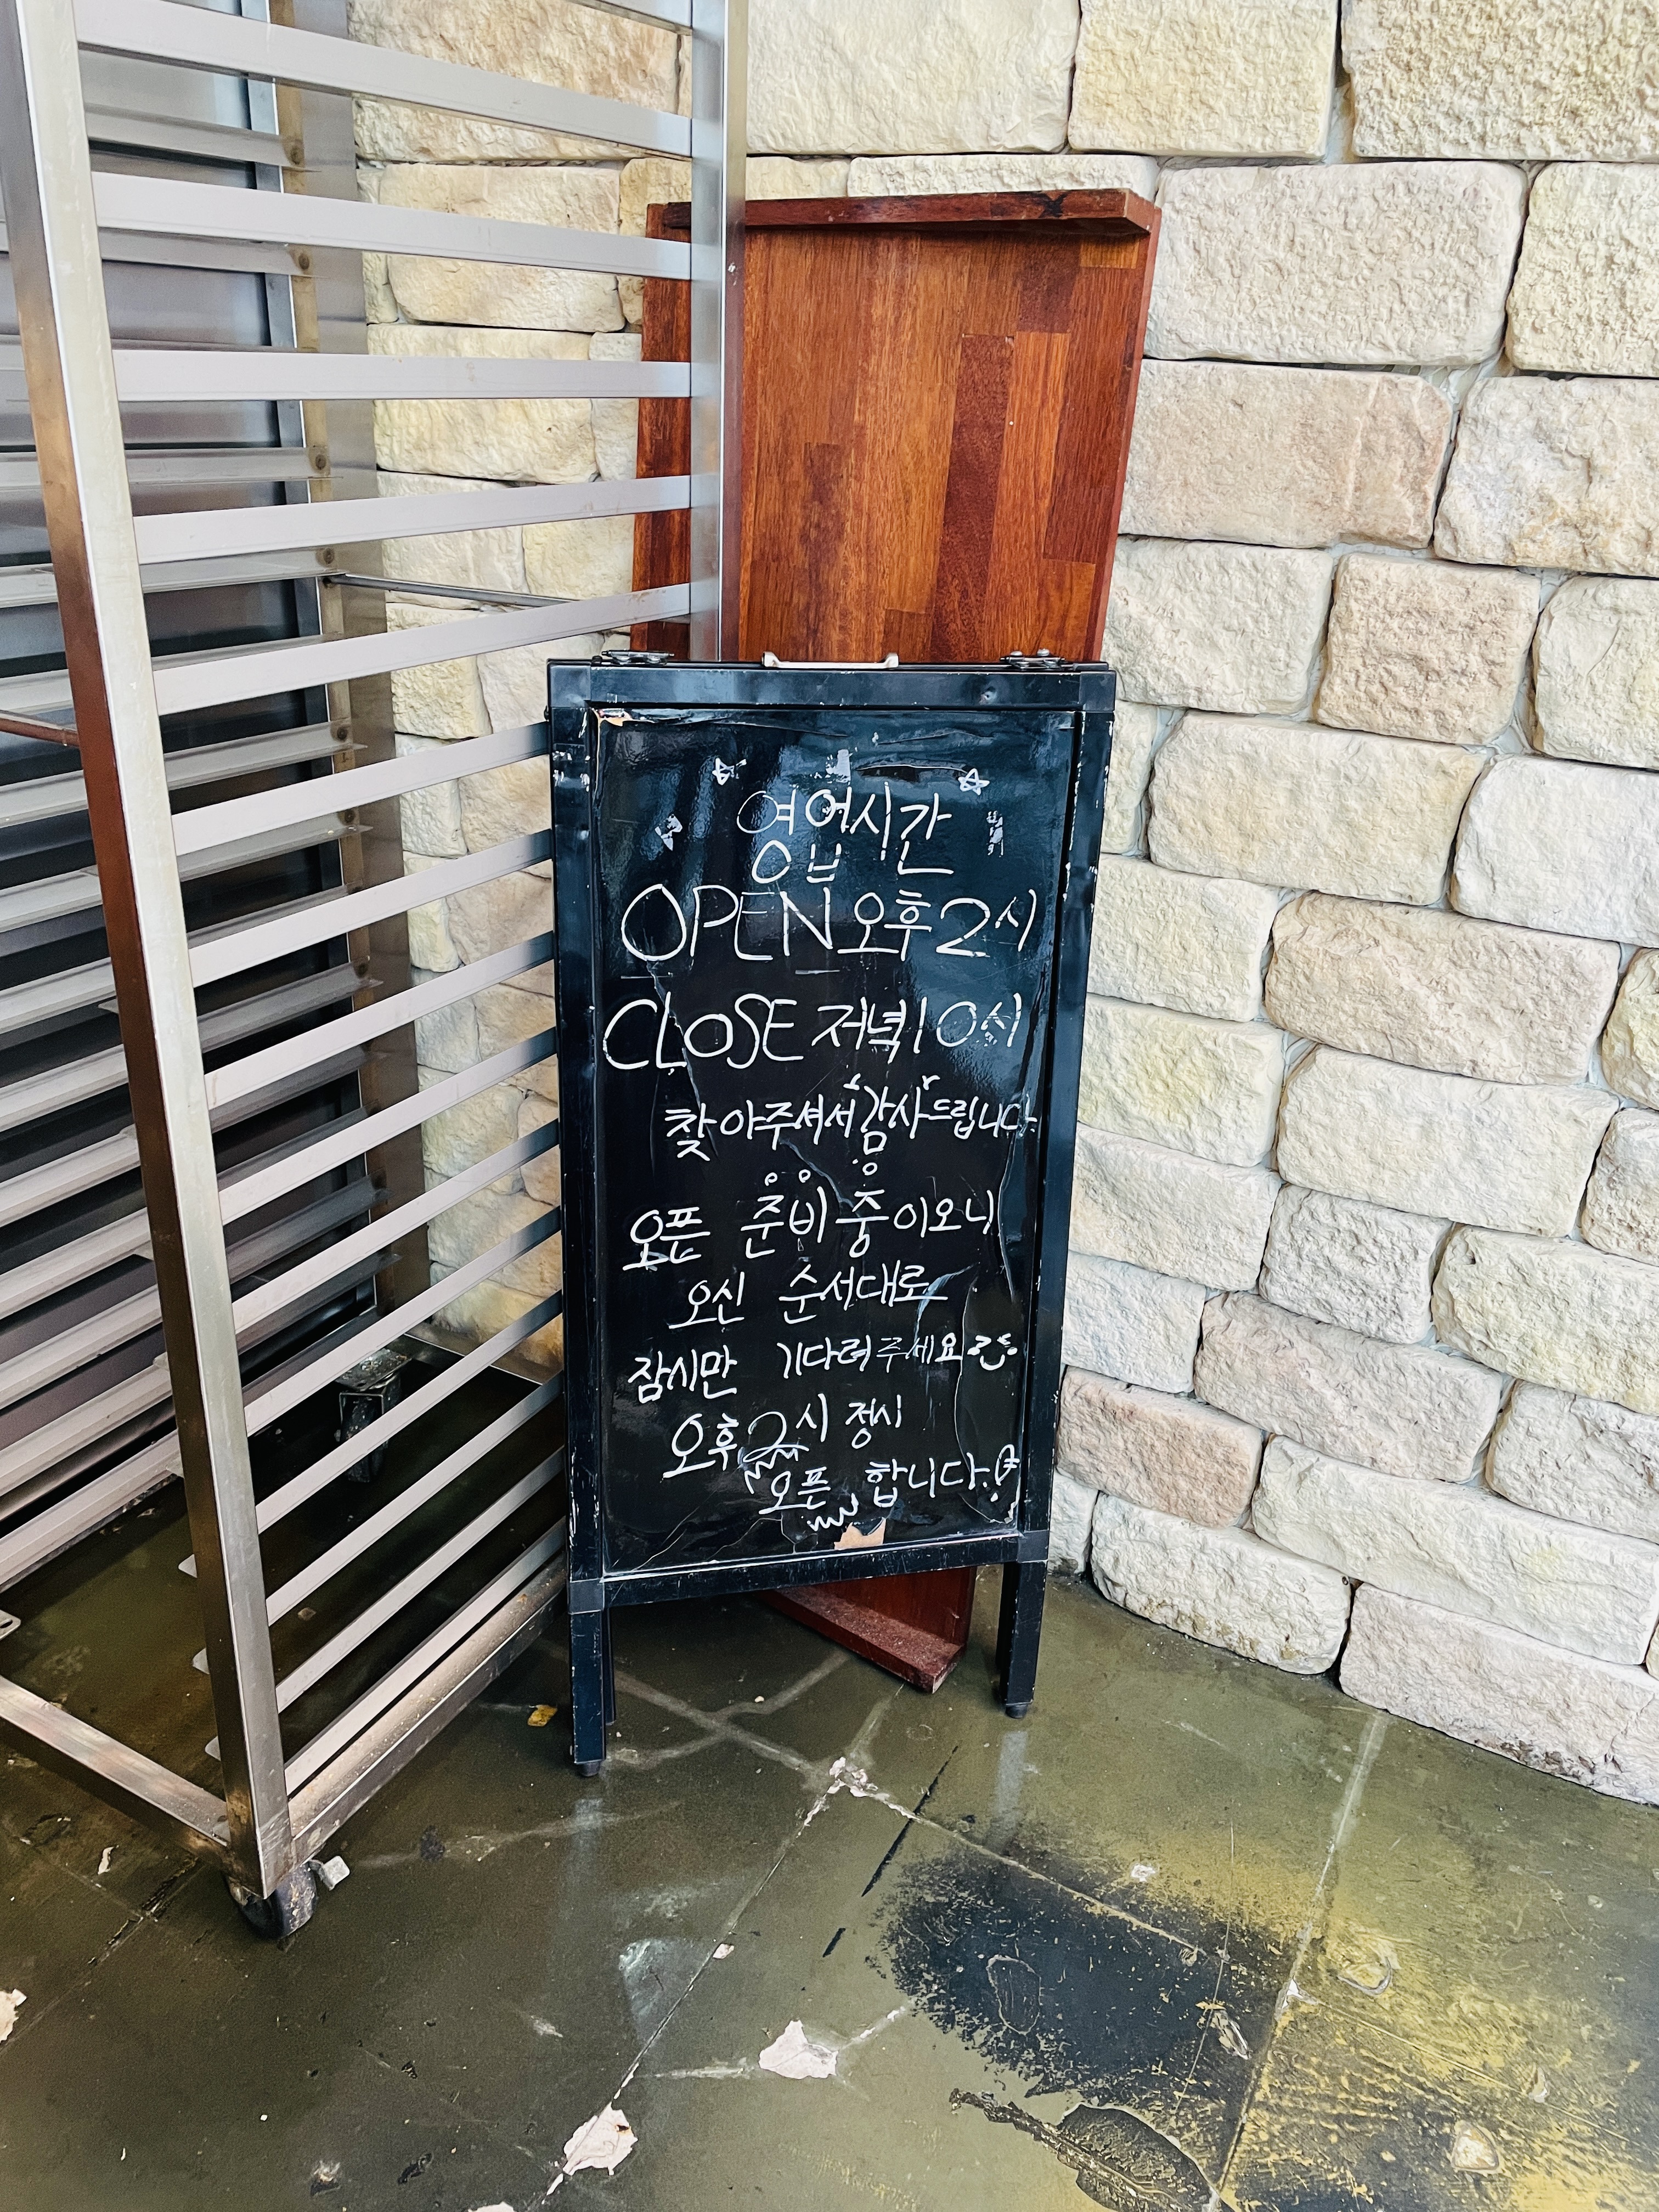 영업시간
OPEN 오후 2시
CLOSE 저녁 10시
찾아주셔서 감사드립니다.
오픈 준비중이오니
오신 순서대로
잠시만 기다려주세요
오후 2시 정시
오픈 합니다.!